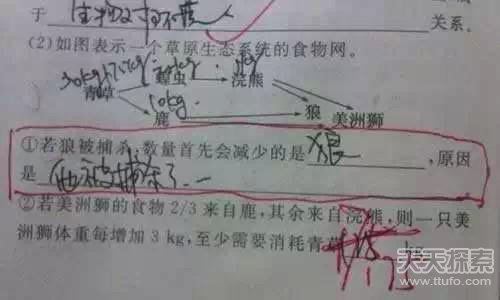 于 生物 关系.
(2)如图表示一个草原生态系统的食物网。
30kg
浣熊
青草
10kg
鹿 狼 美洲狮
①若狼被捕杀,数量首先会减少的是 狼 ,原因
是 他被捕杀了
②若美洲狮的食物 2/3 来自鹿,其余来自浣熊,则一只美
洲狮体重每增加 3 kg,至少需要消耗青草 kg
175
天天探索
www.ttufo.com